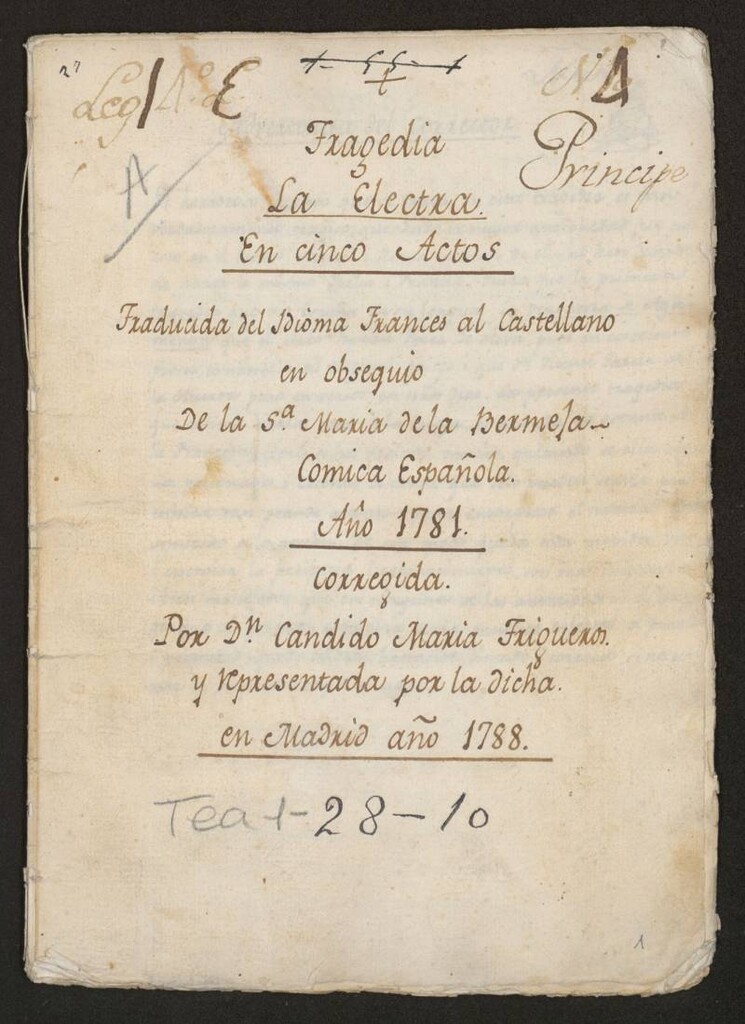 27
Leg
E
1-55-1
Nº
4
Principe
A
Tragedia
La Electra.
En cinco Actos
Traducida del Idioma Frances al Castellano
en obsequio
De la Sª Maria de la Bermeja
Comica Española.
Año 1781.
Corregida.
Por Dⁿ Candido Maria Trigueros.
y representada por la dicha.
en Madrid año 1788.
Tea 1-28-10
1